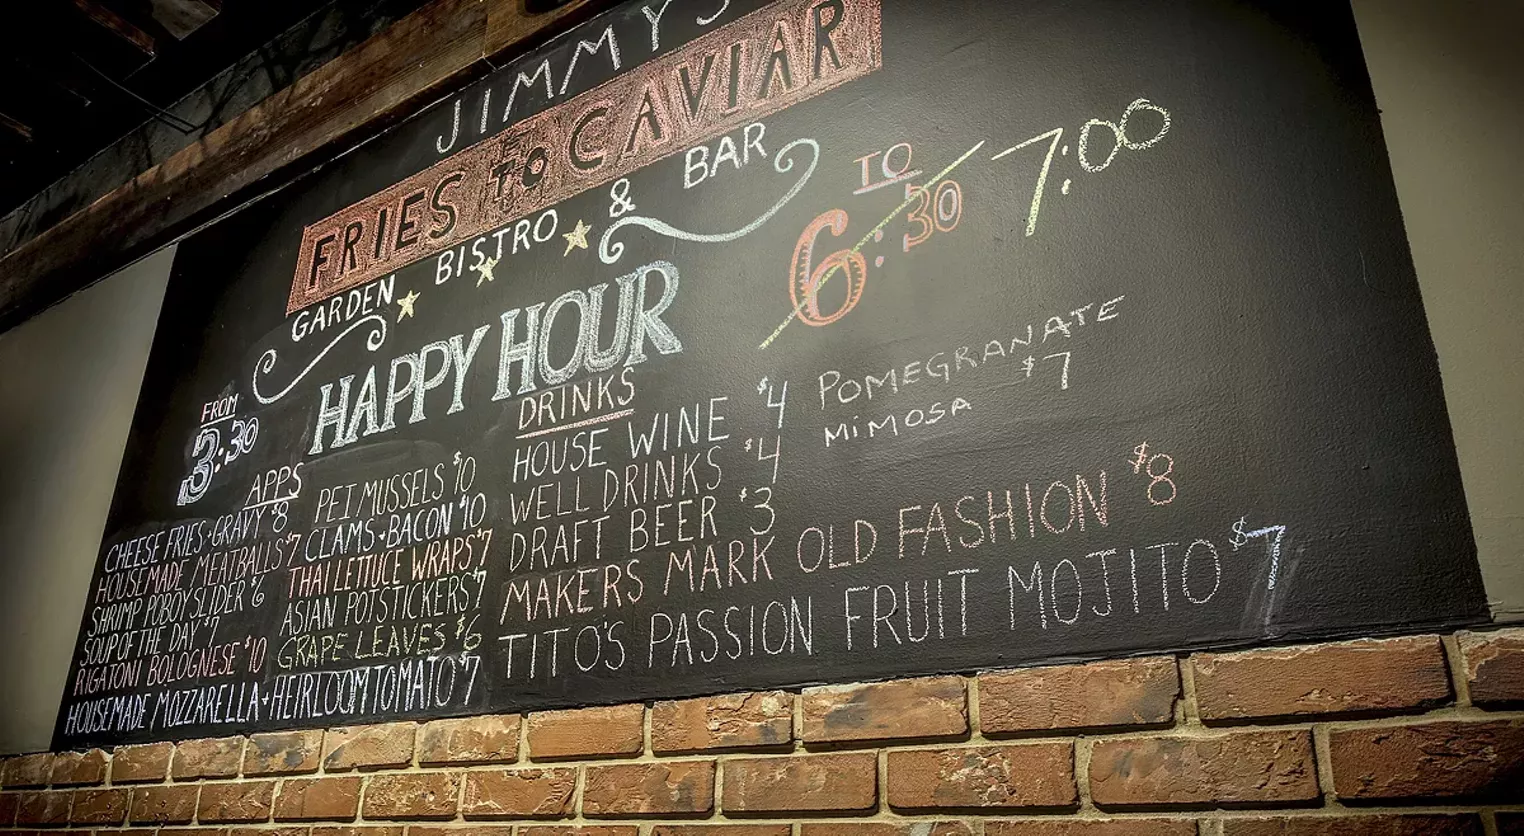 JIMMY'S
FRIES TO CAVIAR
GARDEN BISTRO & BAR
HAPPY HOUR
FROM
3:30
TO
6:30
7:00
APPS
CHEESE FRIES + GRAVY $8
HOUSEMADE MEATBALLS $7
SHRIMP POBOY SLIDER $6
SOUP OF THE DAY $7
RIGATONI BOLOGNESE $10
HOUSEMADE MOZZARELLA + HEIRLOOM TOMATO $7
PEI MUSSELS $10
CLAMS + BACON $10
THAI LETTUCE WRAPS $7
ASIAN POTSTICKERS $7
GRAPE LEAVES $6
DRINKS
HOUSE WINE $4
WELL DRINKS $4
DRAFT BEER $3
MAKERS MARK OLD FASHION $8
TITO'S PASSION FRUIT MOJITO $7
POMEGRANATE
MIMOSA $7